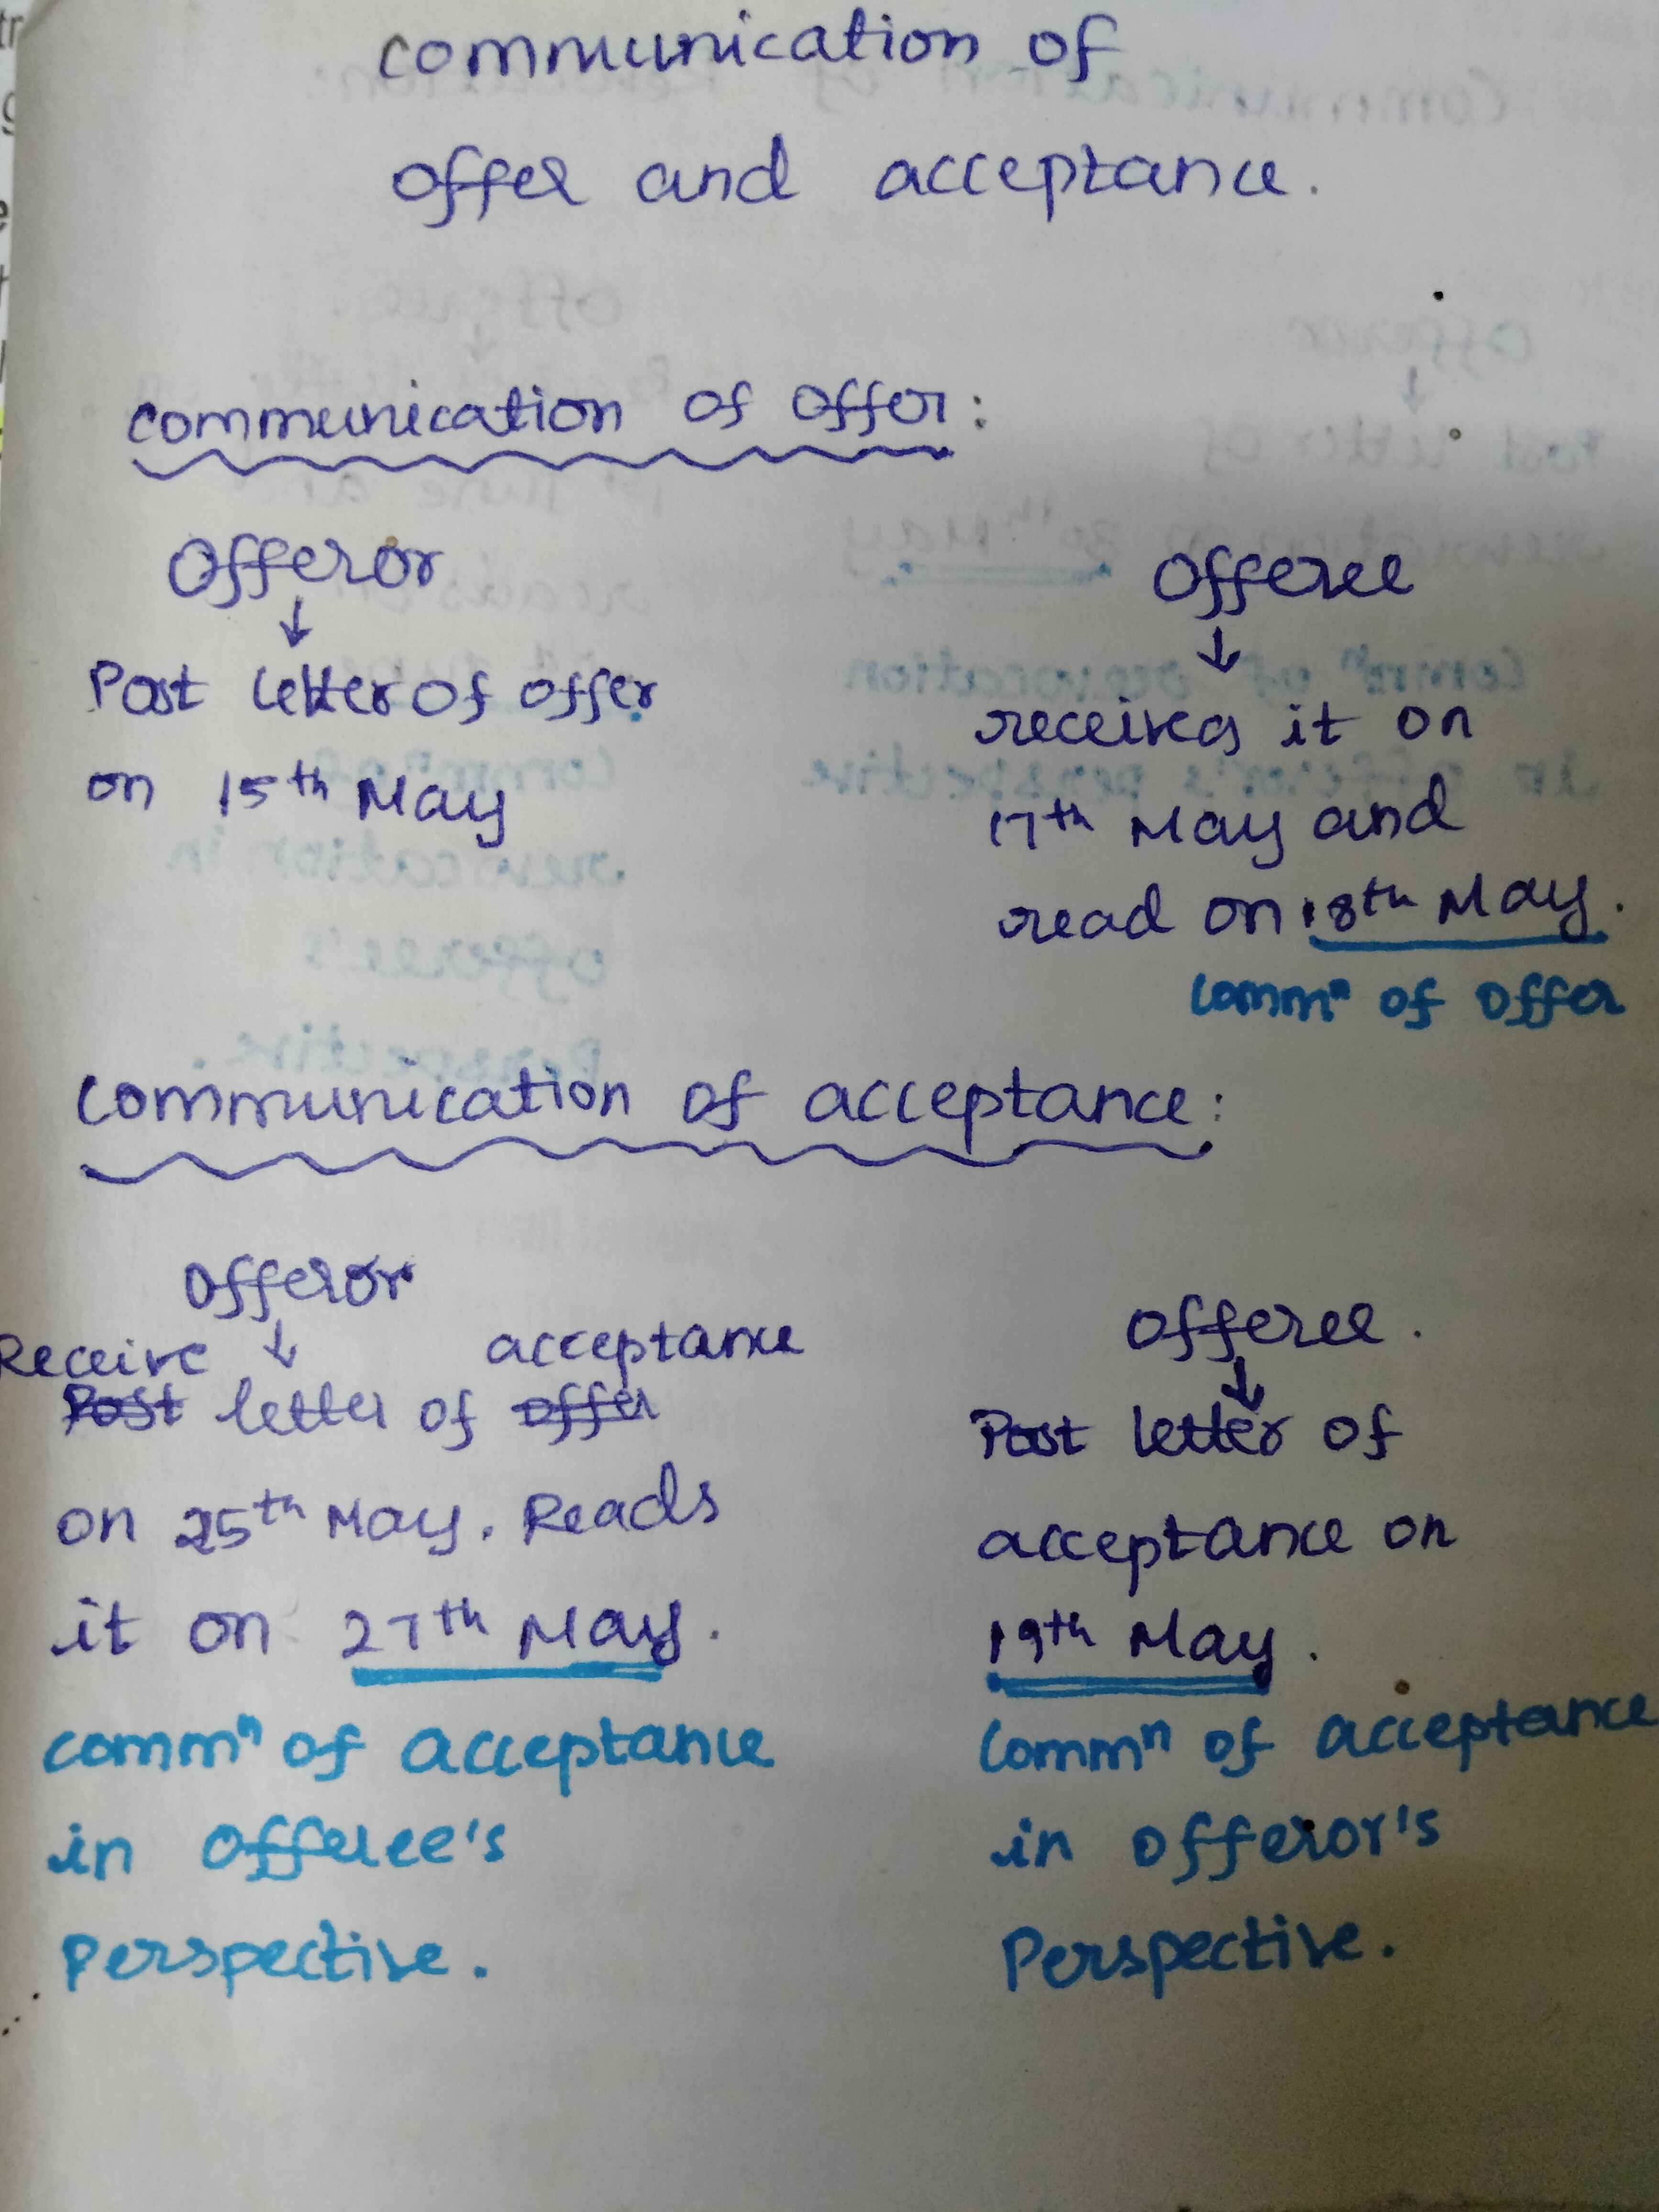 communication of
offer and acceptance.
communication of offer:
Offeror
↓
Post letter of offer
on 15th May
Offeree
↓
receives it on
17th May and
read on 18th May.
Commⁿ of Offer
Communication of acceptance:
Offeror
↓
Receive acceptance
Post letter of offer
on 25th May. Reads
it on 27th May.
commⁿ of acceptance
in Offeree's
Perspective.
Offeree.
↓
Post letter of
acceptance on
19th May.
Commⁿ of acceptance
in Offeror's
Perspective.